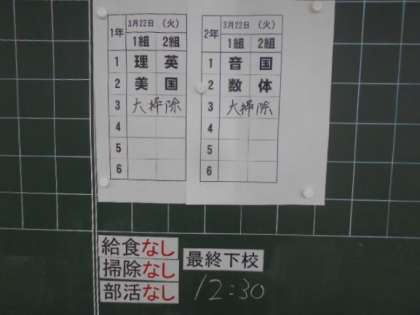 1年 3月22日 (火)
1組 2組
1 理 英
2 美 国
3 大掃除
4
5
6
2年 3月22日 (火)
1組 2組
1 音 国
2 数 体
3 大掃除
4
5
6
給食なし
掃除なし
部活なし
最終下校
12:30